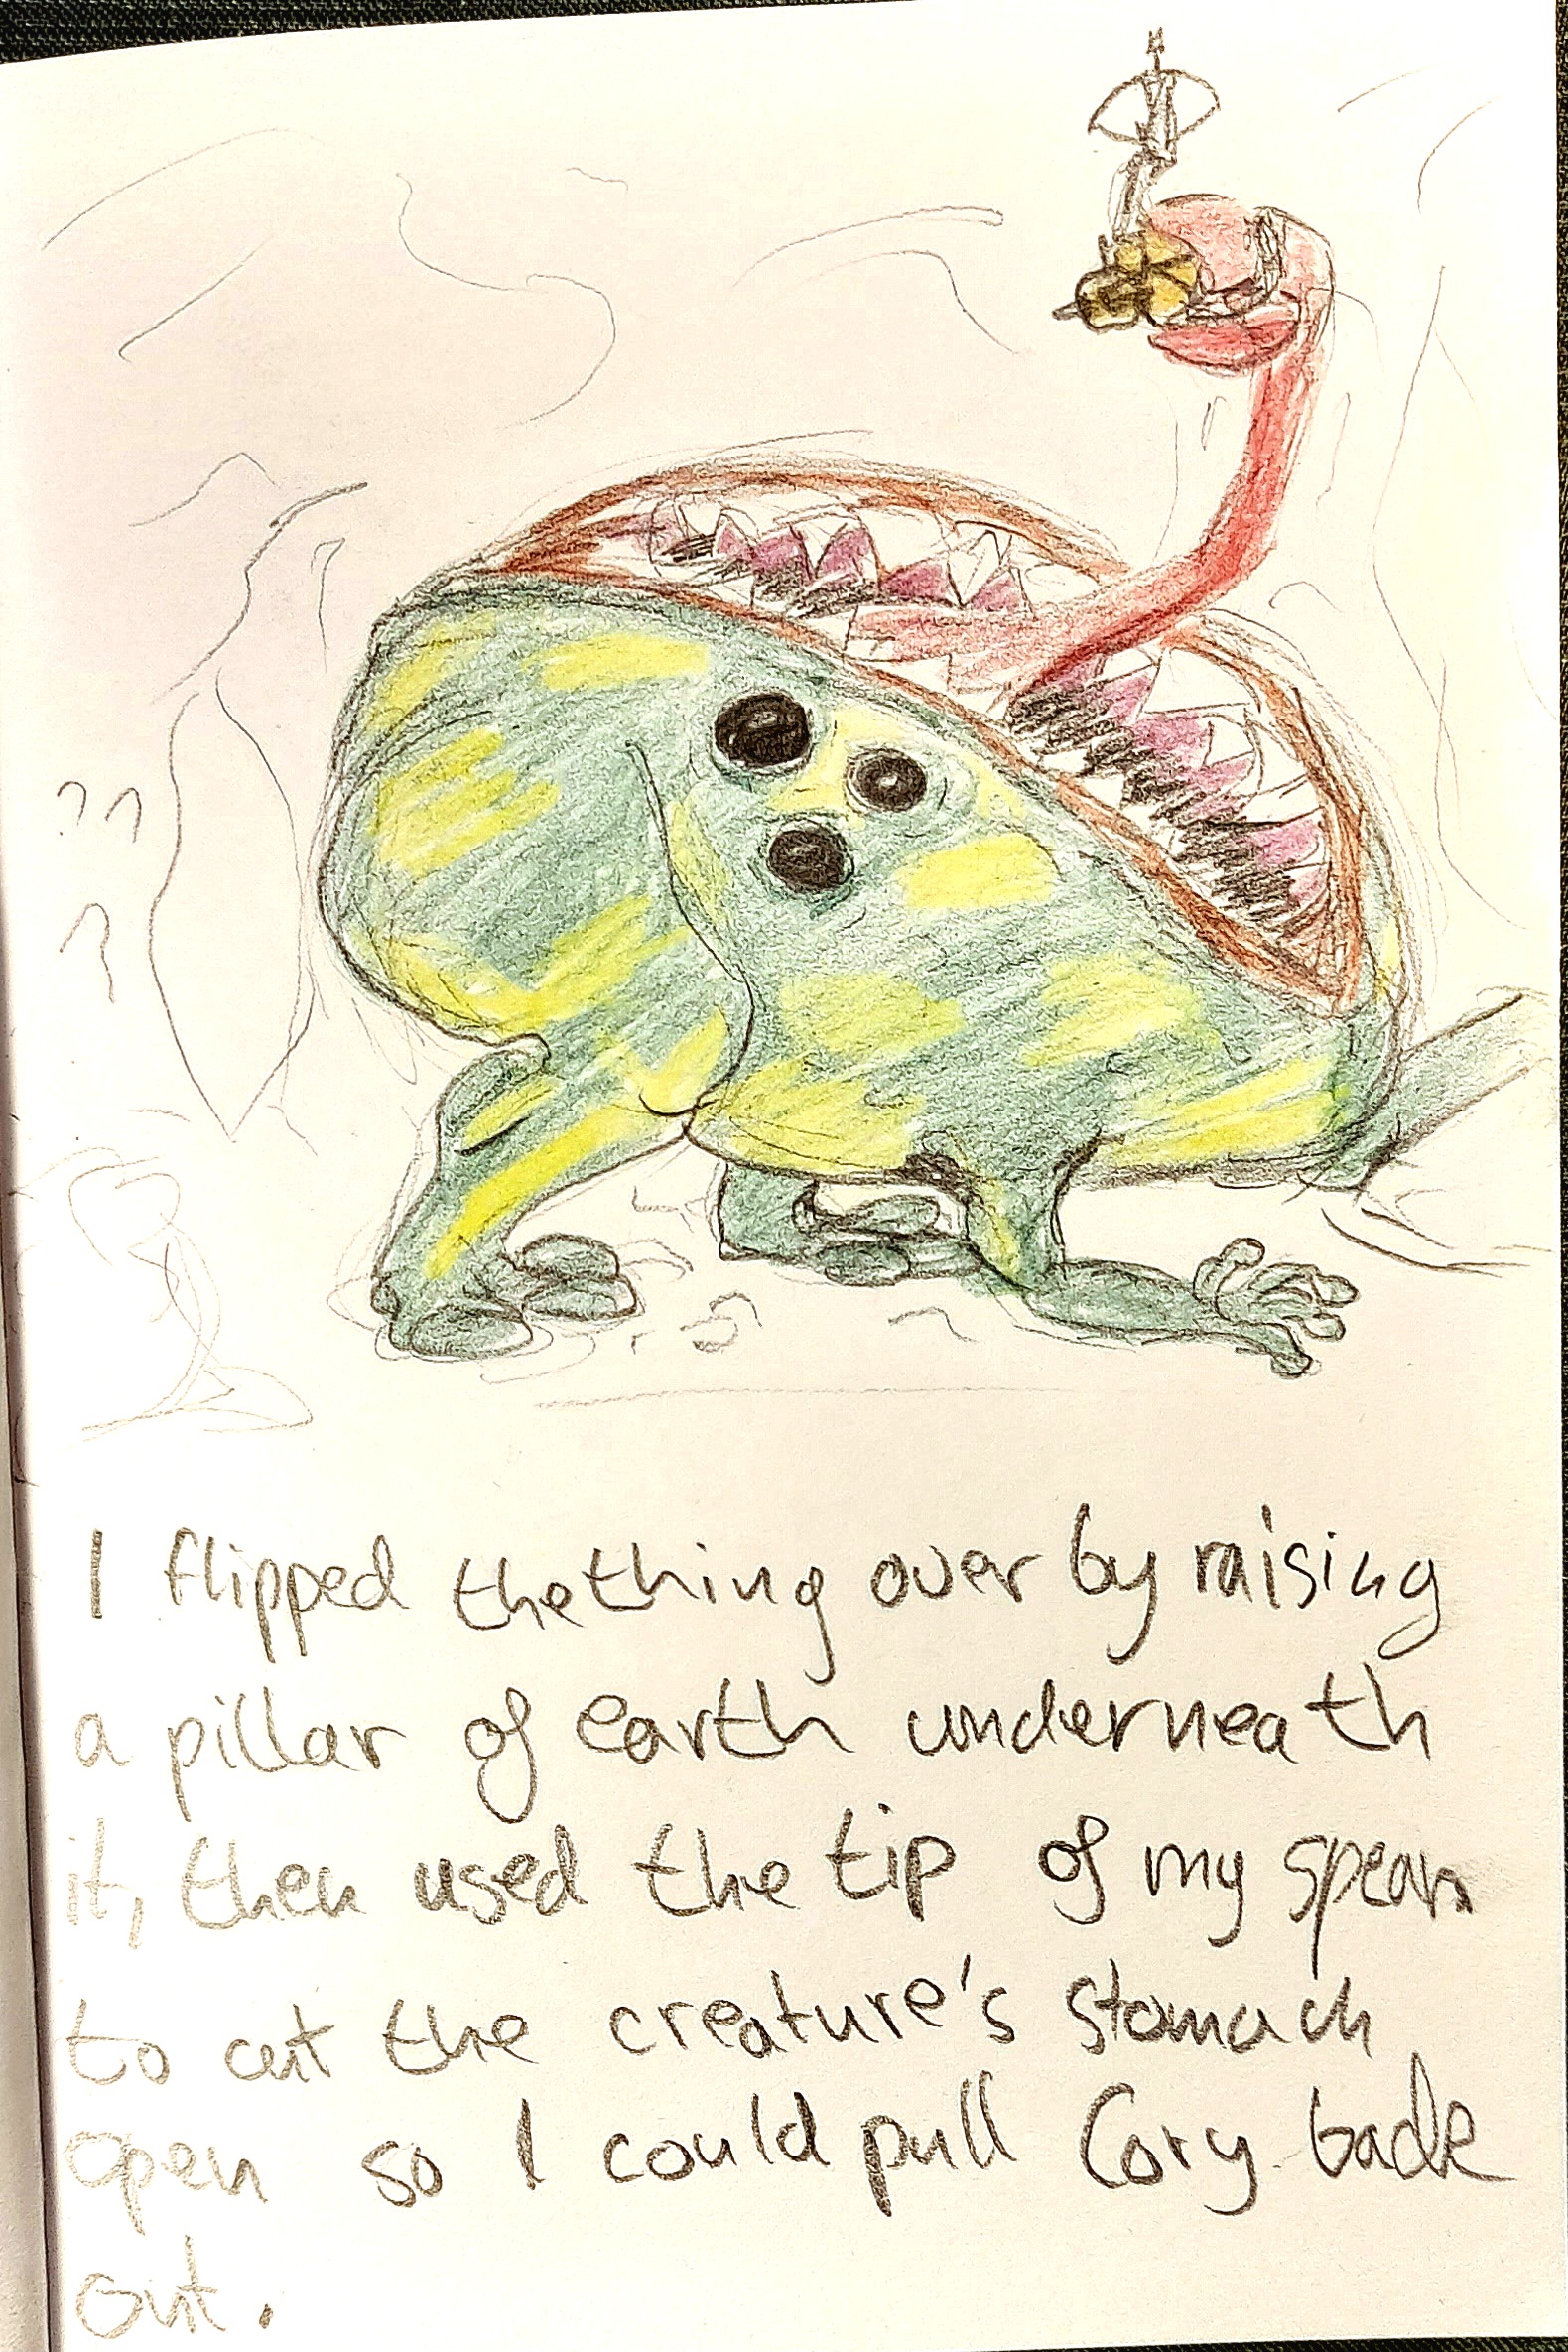 I flipped the thing over by raising
a pillar of earth underneath
it, then used the tip of my spear
to cut the creature's stomach
open so I could pull Cory back
out.